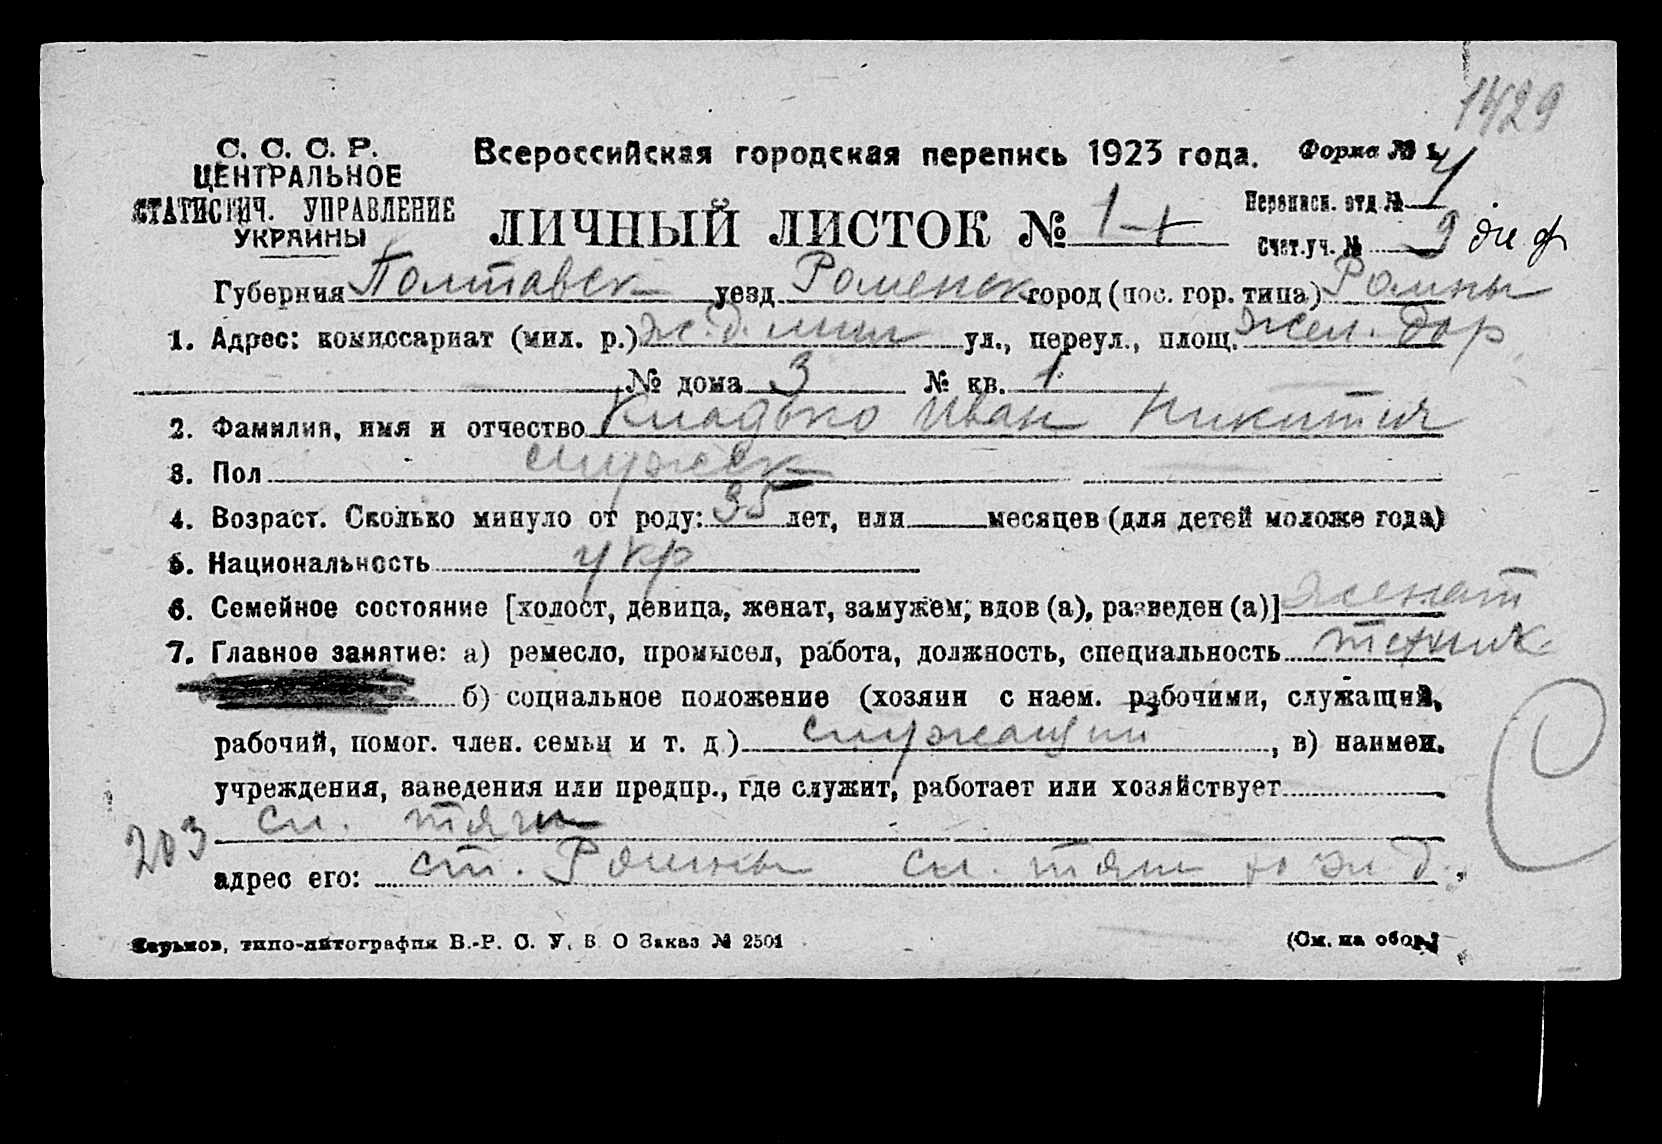 1429
С. С. С. Р.
ЦЕНТРАЛЬНОЕ
СТАТИСТИЧ. УПРАВЛЕНИЕ
УКРАИНЫ
Всероссийская городская перепись 1923 года.
Форма № 1
ЛИЧНЫЙ ЛИСТОК № 1
Переписн. отд. № 4
Счет. уч. № 9
Губерния Полтавск уезд Роменск город (пос. гор. типа) Ромны
1. Адрес: комиссариат (мил. р.) ж.д. мил ул., переул., площ. жел. дор
№ дома 3 № кв. 1
2. Фамилия, имя и отчество Кладько Иван Никитич
3. Пол мужск
4. Возраст. Сколько минуло от роду: 35 лет, или месяцев (для детей моложе года)
5. Национальность укр
6. Семейное состояние [холост, девица, женат, замужем, вдов (а), разведен (а)] женат
7. Главное занятие: а) ремесло, промысел, работа, должность, специальность техник
б) социальное положение (хозяин с наем. рабочими, служащий,
рабочий, помог. член. семьи и т. д.) служащий, в) наимен.
учреждения, заведения или предпр., где служит, работает или хозяйствует
203 сл. тяги
адрес его: ст. Ромны сл. тяги ж.д.
Харьков, типо-литография В.-Р. С. У. В. О Заказ № 2501
(См. на обор.)